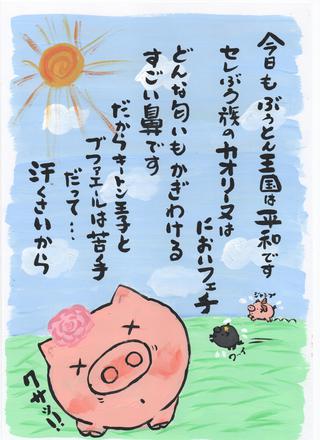 今日もぶぅとん王国は平和です
セレぶぅ族のカオリーヌは
においフェチ
どんな匂いもかぎわける
すごい鼻です
だからキートン王子と
ブファエルは苦手
だって…
汗くさいから
クサッ!!
ジャンプ
ワーイ